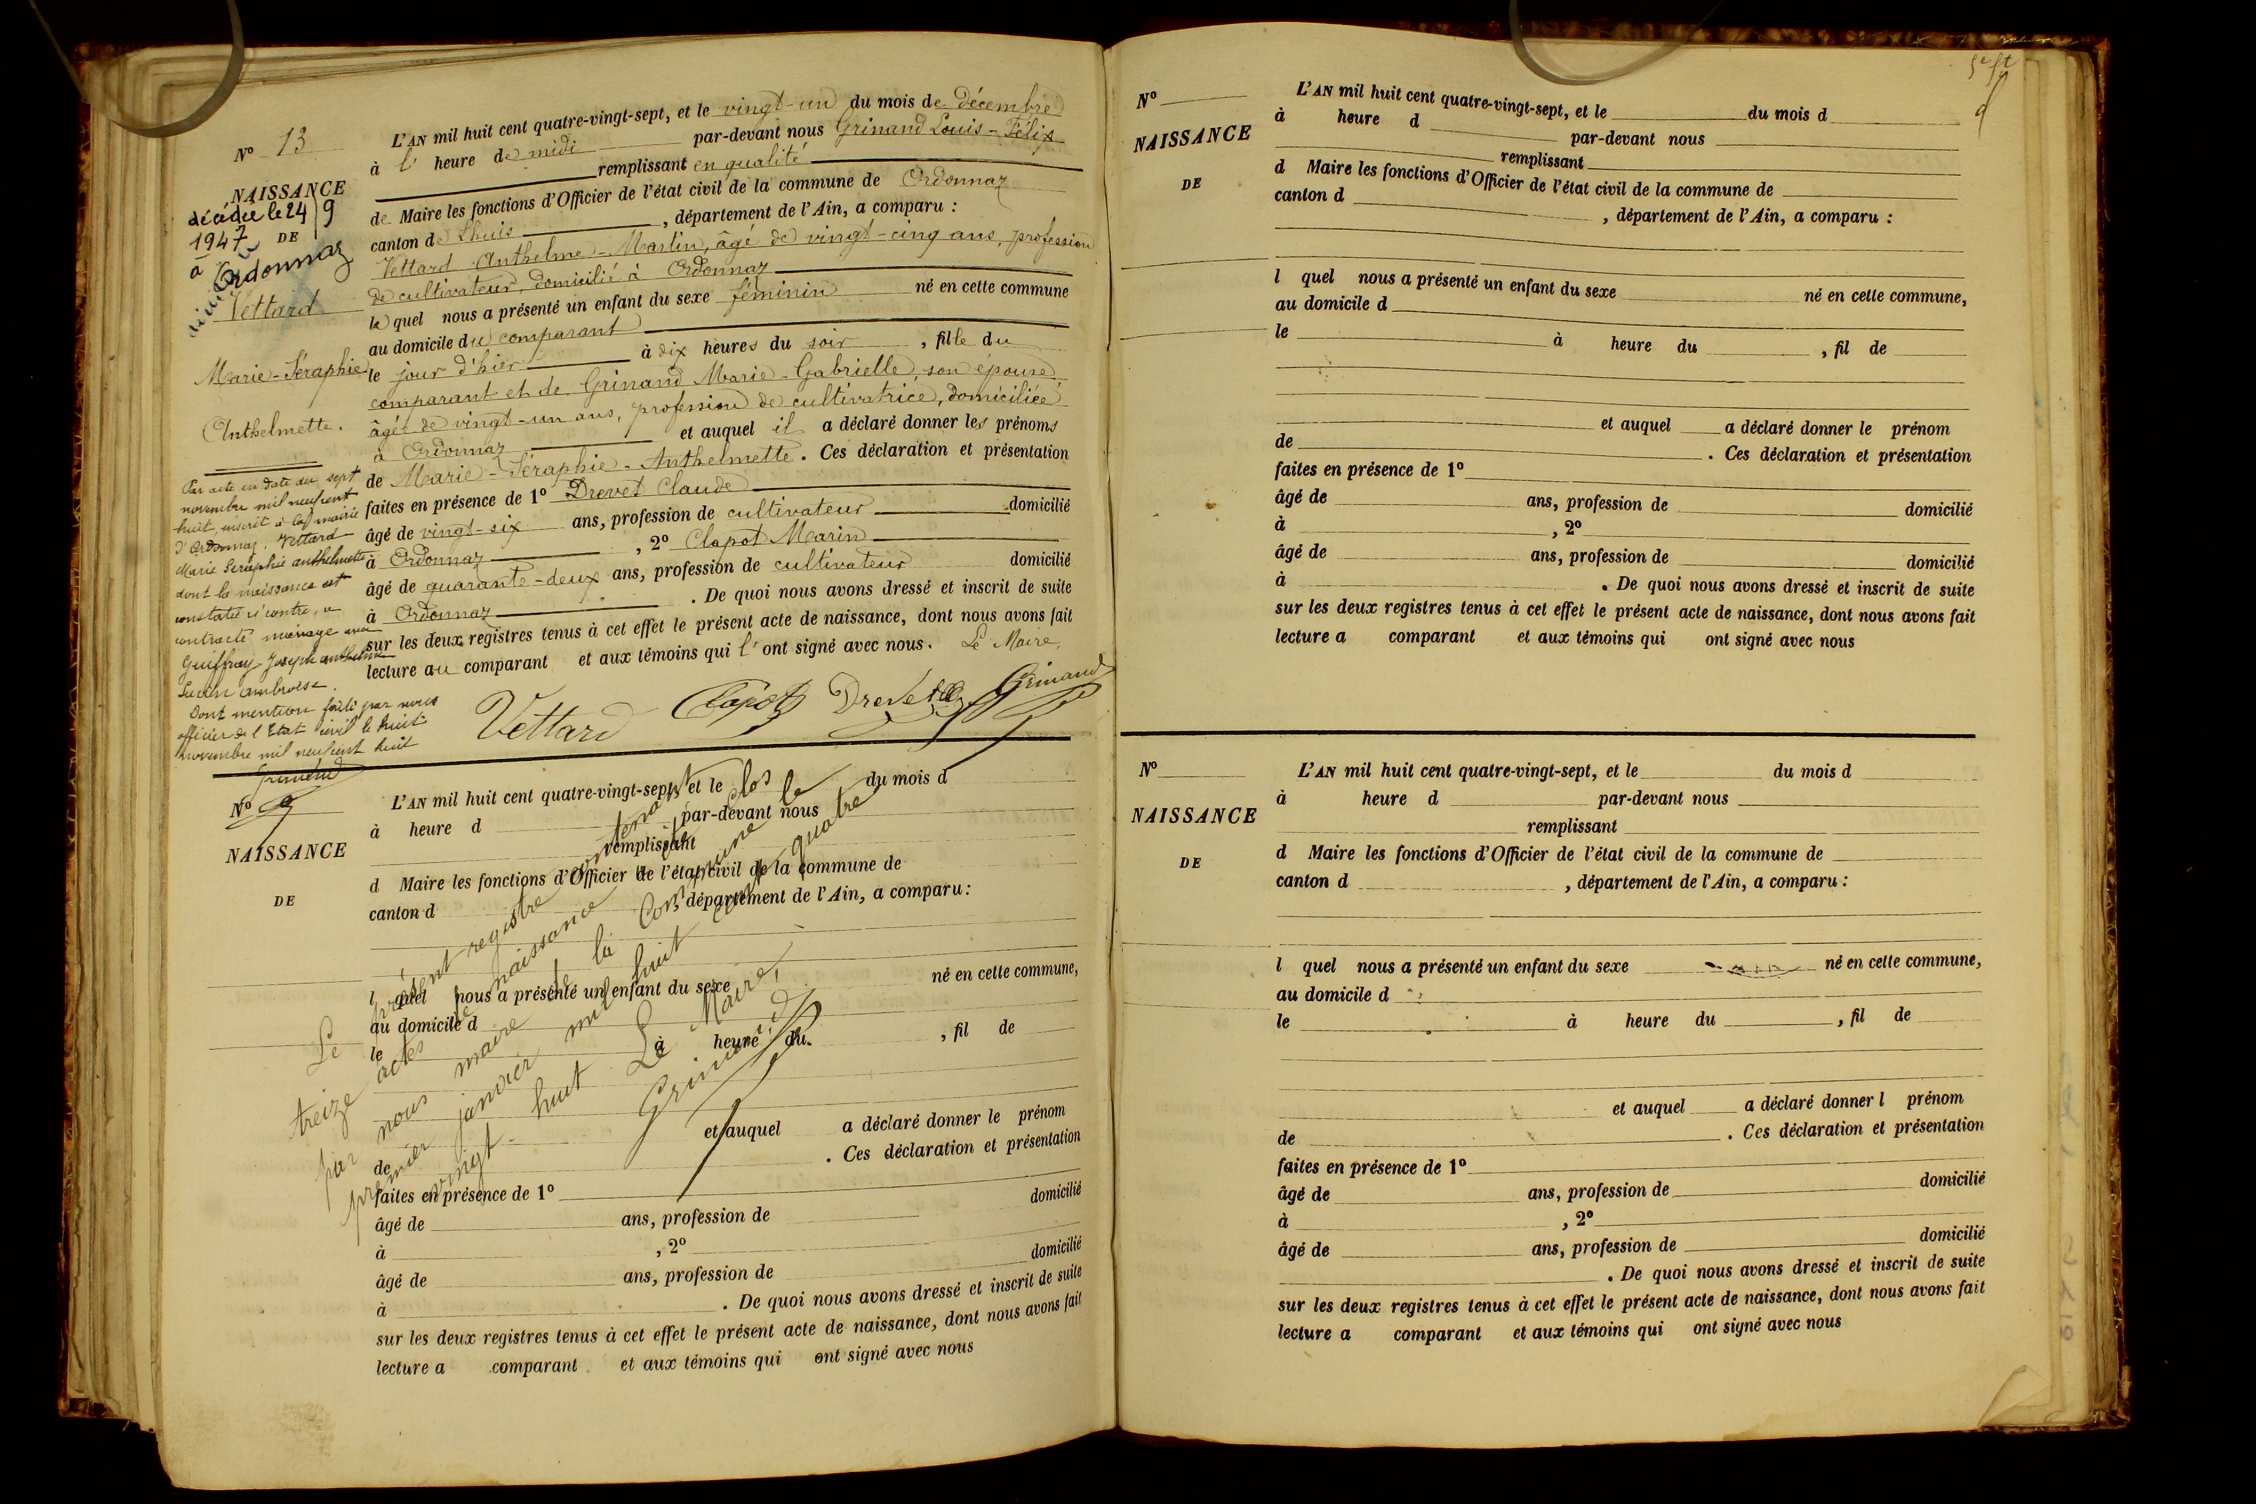 N° 13
NAISSANCE
décédée le 24/9
1947
DE
à Ordonnaz
Vettard
Marie-Séraphie
Anthelmette.
Par acte en date du sept
novembre mil neuf cent
huit inscrit à la mairie
d'Ordonnaz, Vettard
Marie Seraphie anthelmette
dont la naissance est
constatée ci contre, a
contracté mariage avec
Guiffray Joseph anthelme
Lucien ambroise.
Dont mention faite par nous
officier de l'Etat civil le huit
novembre mil neuf cent huit
Grinand
L'AN mil huit cent quatre-vingt-sept, et le vingt-un du mois de décembre
à l' heure de midi par-devant nous Grinand Louis-Félix
remplissant en qualité
de Maire les fonctions d'Officier de l'état civil de la commune de Ordonnaz
canton de Lhuis, département de l'Ain, a comparu :
Vettard Anthelme-Martin, âgé de vingt-cinq ans, profession
de cultivateur, domicilié à Ordonnaz
le quel nous a présenté un enfant du sexe féminin né en cette commune
au domicile du comparant
le jour d'hier à dix heures du soir, fille du
comparant et de Grinand Marie-Gabrielle, son épouse
âgée de vingt-un ans, profession de cultivatrice, domiciliée
à Ordonnaz et auquel il a déclaré donner les prénoms
de Marie-Séraphie-Anthelmette. Ces déclaration et présentation
faites en présence de 1° Drevet Claude
âgé de vingt-six ans, profession de cultivateur domicilié
à Ordonnaz, 2° Clapot Marin
âgé de quarante-deux ans, profession de cultivateur domicilié
à Ordonnaz. De quoi nous avons dressé et inscrit de suite
sur les deux registres tenus à cet effet le présent acte de naissance, dont nous avons fait
lecture au comparant et aux témoins qui l'ont signé avec nous. Le Maire,
Vettard Clapot Drevet Grinand
N°
NAISSANCE
DE
L'AN mil huit cent quatre-vingt-sept, et le du mois d
à heure d par-devant nous
remplissant
d Maire les fonctions d'Officier de l'état civil de la commune de
canton d , département de l'Ain, a comparu :
l quel nous a présenté un enfant du sexe né en cette commune,
au domicile d
le à heure du , fil de
et auquel a déclaré donner le prénom
de . Ces déclaration et présentation
faites en présence de 1°
âgé de ans, profession de domicilié
à , 2°
âgé de ans, profession de domicilié
à . De quoi nous avons dressé et inscrit de suite
sur les deux registres tenus à cet effet le présent acte de naissance, dont nous avons fait
lecture a comparant et aux témoins qui ont signé avec nous
Le présent registre contenant
treize actes de naissance a été clos
par nous maire de la Commune le
premier janvier mil huit cent quatre
vingt-huit Le Maire,
Grinand
N°
NAISSANCE
DE
L'AN mil huit cent quatre-vingt-sept, et le du mois d
à heure d par-devant nous
remplissant
d Maire les fonctions d'Officier de l'état civil de la commune de
canton d , département de l'Ain, a comparu :
l quel nous a présenté un enfant du sexe né en cette commune,
au domicile d
le à heure du , fil de
et auquel a déclaré donner le prénom
de . Ces déclaration et présentation
faites en présence de 1°
âgé de ans, profession de domicilié
à , 2°
âgé de ans, profession de domicilié
à . De quoi nous avons dressé et inscrit de suite
sur les deux registres tenus à cet effet le présent acte de naissance, dont nous avons fait
lecture a comparant et aux témoins qui ont signé avec nous
N°
NAISSANCE
DE
L'AN mil huit cent quatre-vingt-sept, et le du mois d
à heure d par-devant nous
remplissant
d Maire les fonctions d'Officier de l'état civil de la commune de
canton d , département de l'Ain, a comparu :
l quel nous a présenté un enfant du sexe né en cette commune,
au domicile d
le à heure du , fil de
et auquel a déclaré donner l prénom
de . Ces déclaration et présentation
faites en présence de 1°
âgé de ans, profession de domicilié
à , 2°
âgé de ans, profession de domicilié
. De quoi nous avons dressé et inscrit de suite
sur les deux registres tenus à cet effet le présent acte de naissance, dont nous avons fait
lecture a comparant et aux témoins qui ont signé avec nous